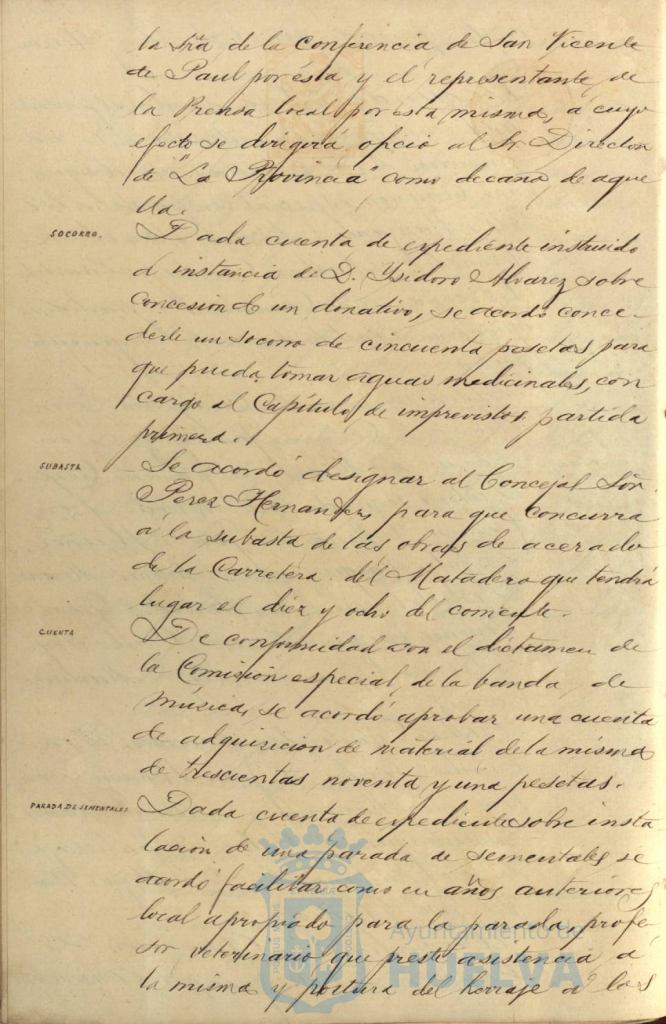 la Srã de la conferencia de San Vicente
de Paul por ésta y el representante de
la Prensa local por esta misma, a cuyo
efecto se dirigirá oficio al Sr Director
de "La Provincia" como decano de aque
lla.
SOCORRO.
Dada cuenta de expediente instruido
á instancia de D. Ysidoro Alvarez sobre
concesion de un donativo, se acordó conce-
derle un socorro de cincuenta pesetas para
que pueda tomar aguas medicinales, con
cargo al Capítulo de imprevistos partida
primera.
SUBASTA
Se acordó designar al Concejal Sõr
Perez Hernandez para que concurra
á la subasta de las obras de acerado
de la Carretera del Matadero que tendrá
lugar el diez y ocho del corriente.
CUENTA
De conformidad con el dictamen de
la Comisión especial de la banda de
música, se acordó aprobar una cuenta
de adquisicion de material de la misma
de trescientas noventa y una pesetas.
PARADA DE SEMENTALES
Dada cuenta de expediente sobre insta
lación de una parada de sementales se
acordó facilitar como en años anteriores
local apropiado para la parada, profe
sor veterinario que preste asistencia á
la misma y postura del herraje á los
Ayuntamiento de
HUELVA